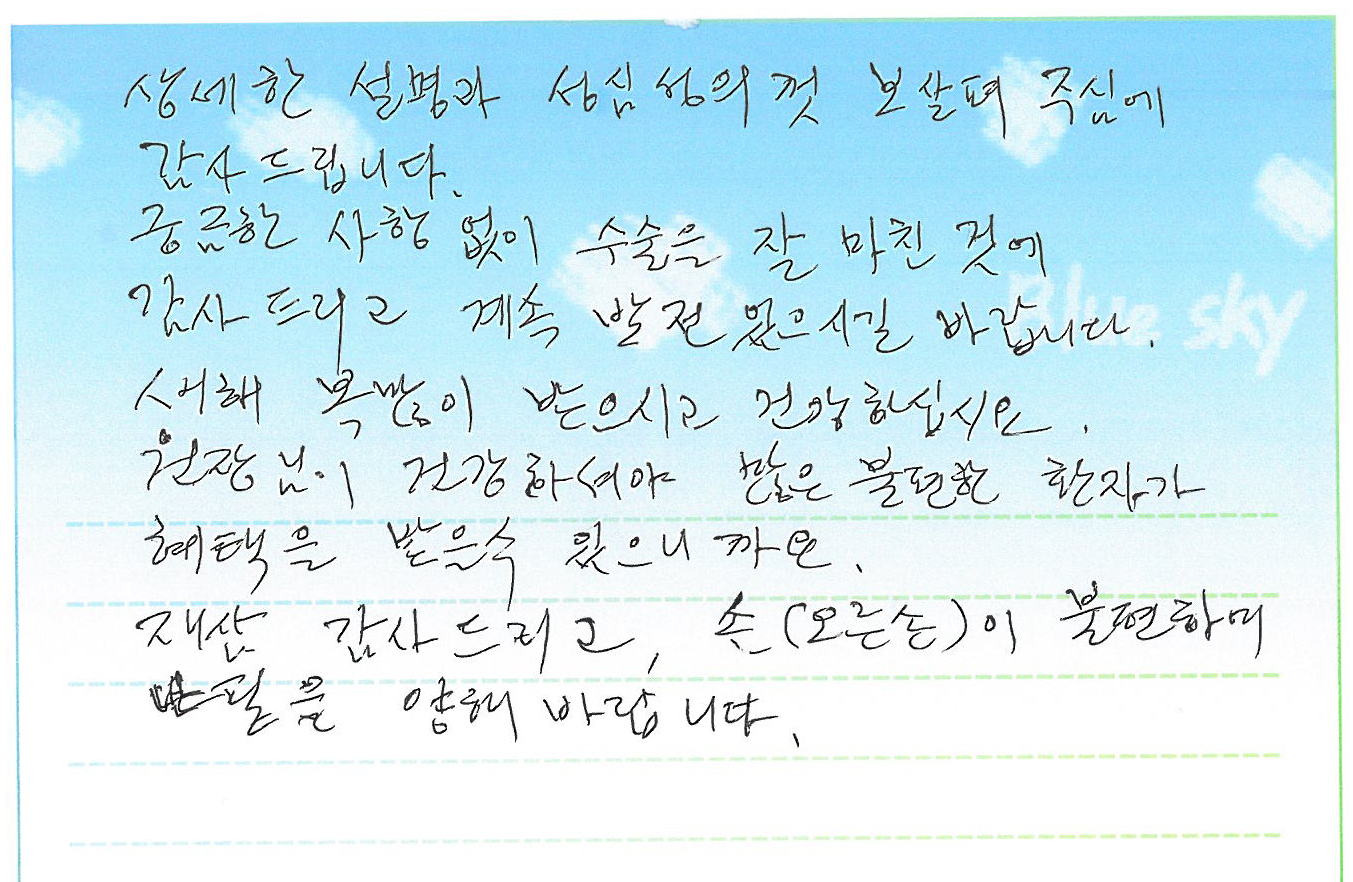 상세한 설명과 성심성의껏 보살펴 주심에
감사드립니다.
궁금한 사항 없이 수술은 잘 마친 것에
감사드리고 계속 발전 있으시길 바랍니다.
Blue sky
새해 복많이 받으시고 건강하십시요.
원장님이 건강하셔야 많은 불편한 환자가
혜택을 받을수 있으니까요.
재삼 감사드리고, 손(오른손)이 불편하며
을 양해 바랍니다.